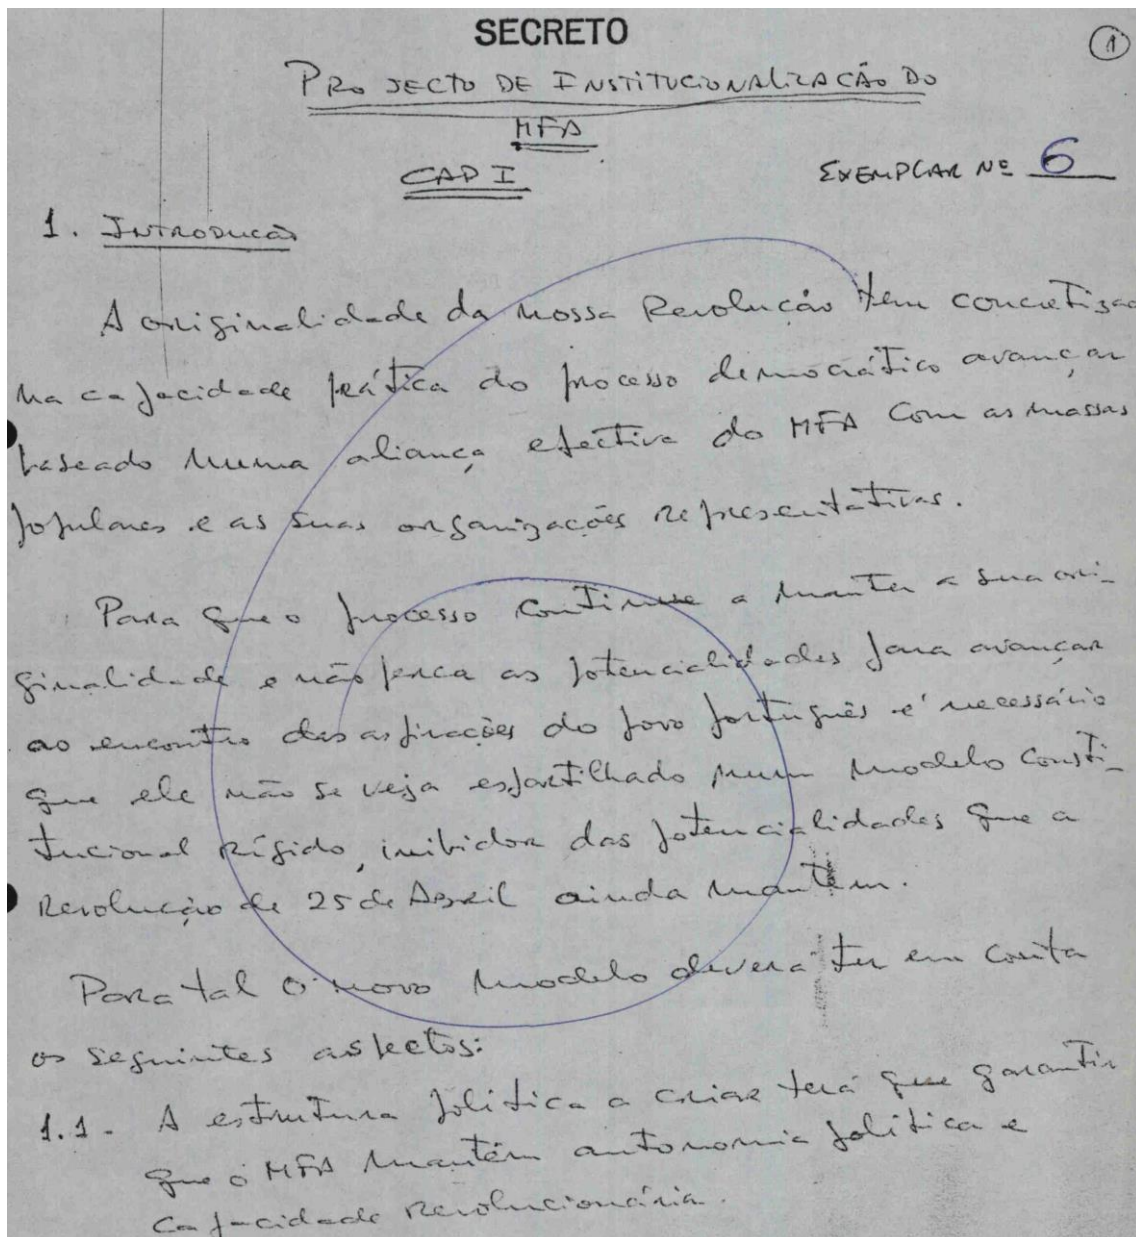 SECRETO
1
PROJECTO DE INSTITUCIONALIZAÇÃO DO
MFA
CAP I
EXEMPLAR Nº 6
1. INTRODUÇÃO
A originalidade da nossa Revolução tem concretizad
na capacidade prática do processo democrático avançar
baseado numa aliança efectiva do MFA com as massas
populares e as suas organizações representativas.
Para que o processo continue a manter a sua ori-
ginalidade e não perca as potencialidades para avançar
ao encontro das aspirações do povo português é necessário
que ele não se veja espartilhado num modelo consti-
tucional rígido, inibidor das potencialidades que a
Revolução de 25 de Abril ainda mantem.
Para tal o novo modelo deverá ter em conta
os seguintes aspectos:
1.1 - A estrutura política a criar terá que garantir
que o MFA mantém autonomia política e
capacidade revolucionária.